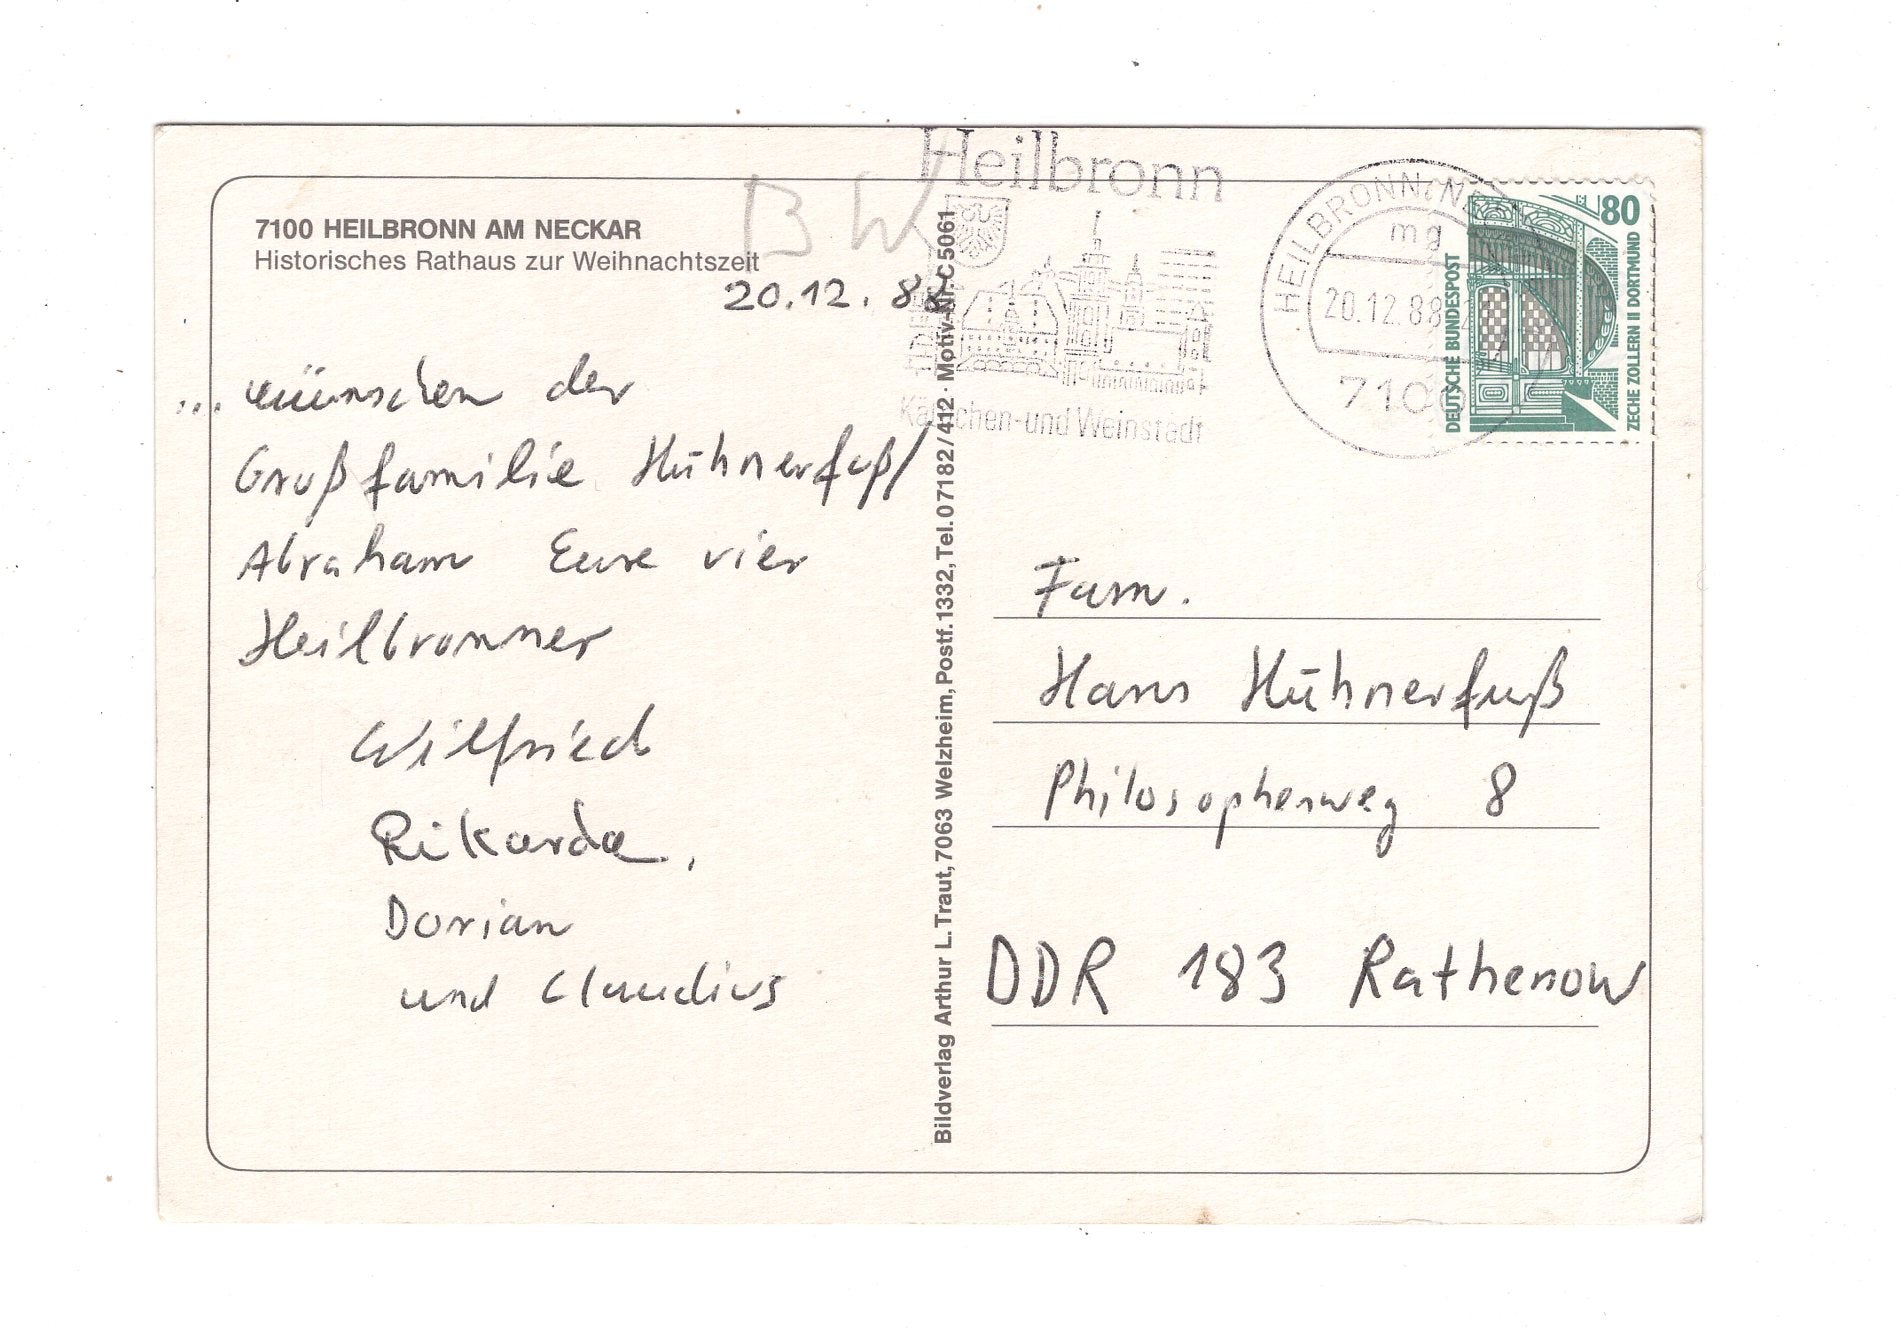 7100 HEILBRONN AM NECKAR
Historisches Rathaus zur Weihnachtszeit
BW
20.12.88
... wünschen der
Großfamilie Hühnerfuß/
Abraham Eure vier
Heilbronner
Wilfried
Rikarda,
Dorian
und Claudius
Bildverlag Arthur L. Traut, 7063 Welzheim, Postf. 1332, Tel. 07182/412 · Motiv-Nr. C 5061
Heilbronn
Käthchen-und Weinstadt
HEILBRONN, NE
mg
20.12.88
7100
80
DEUTSCHE BUNDESPOST
ZECHE ZOLLERN II DORTMUND
Fam.
Hans Hühnerfuß
Philosophenweg 8
DDR 183 Rathenow